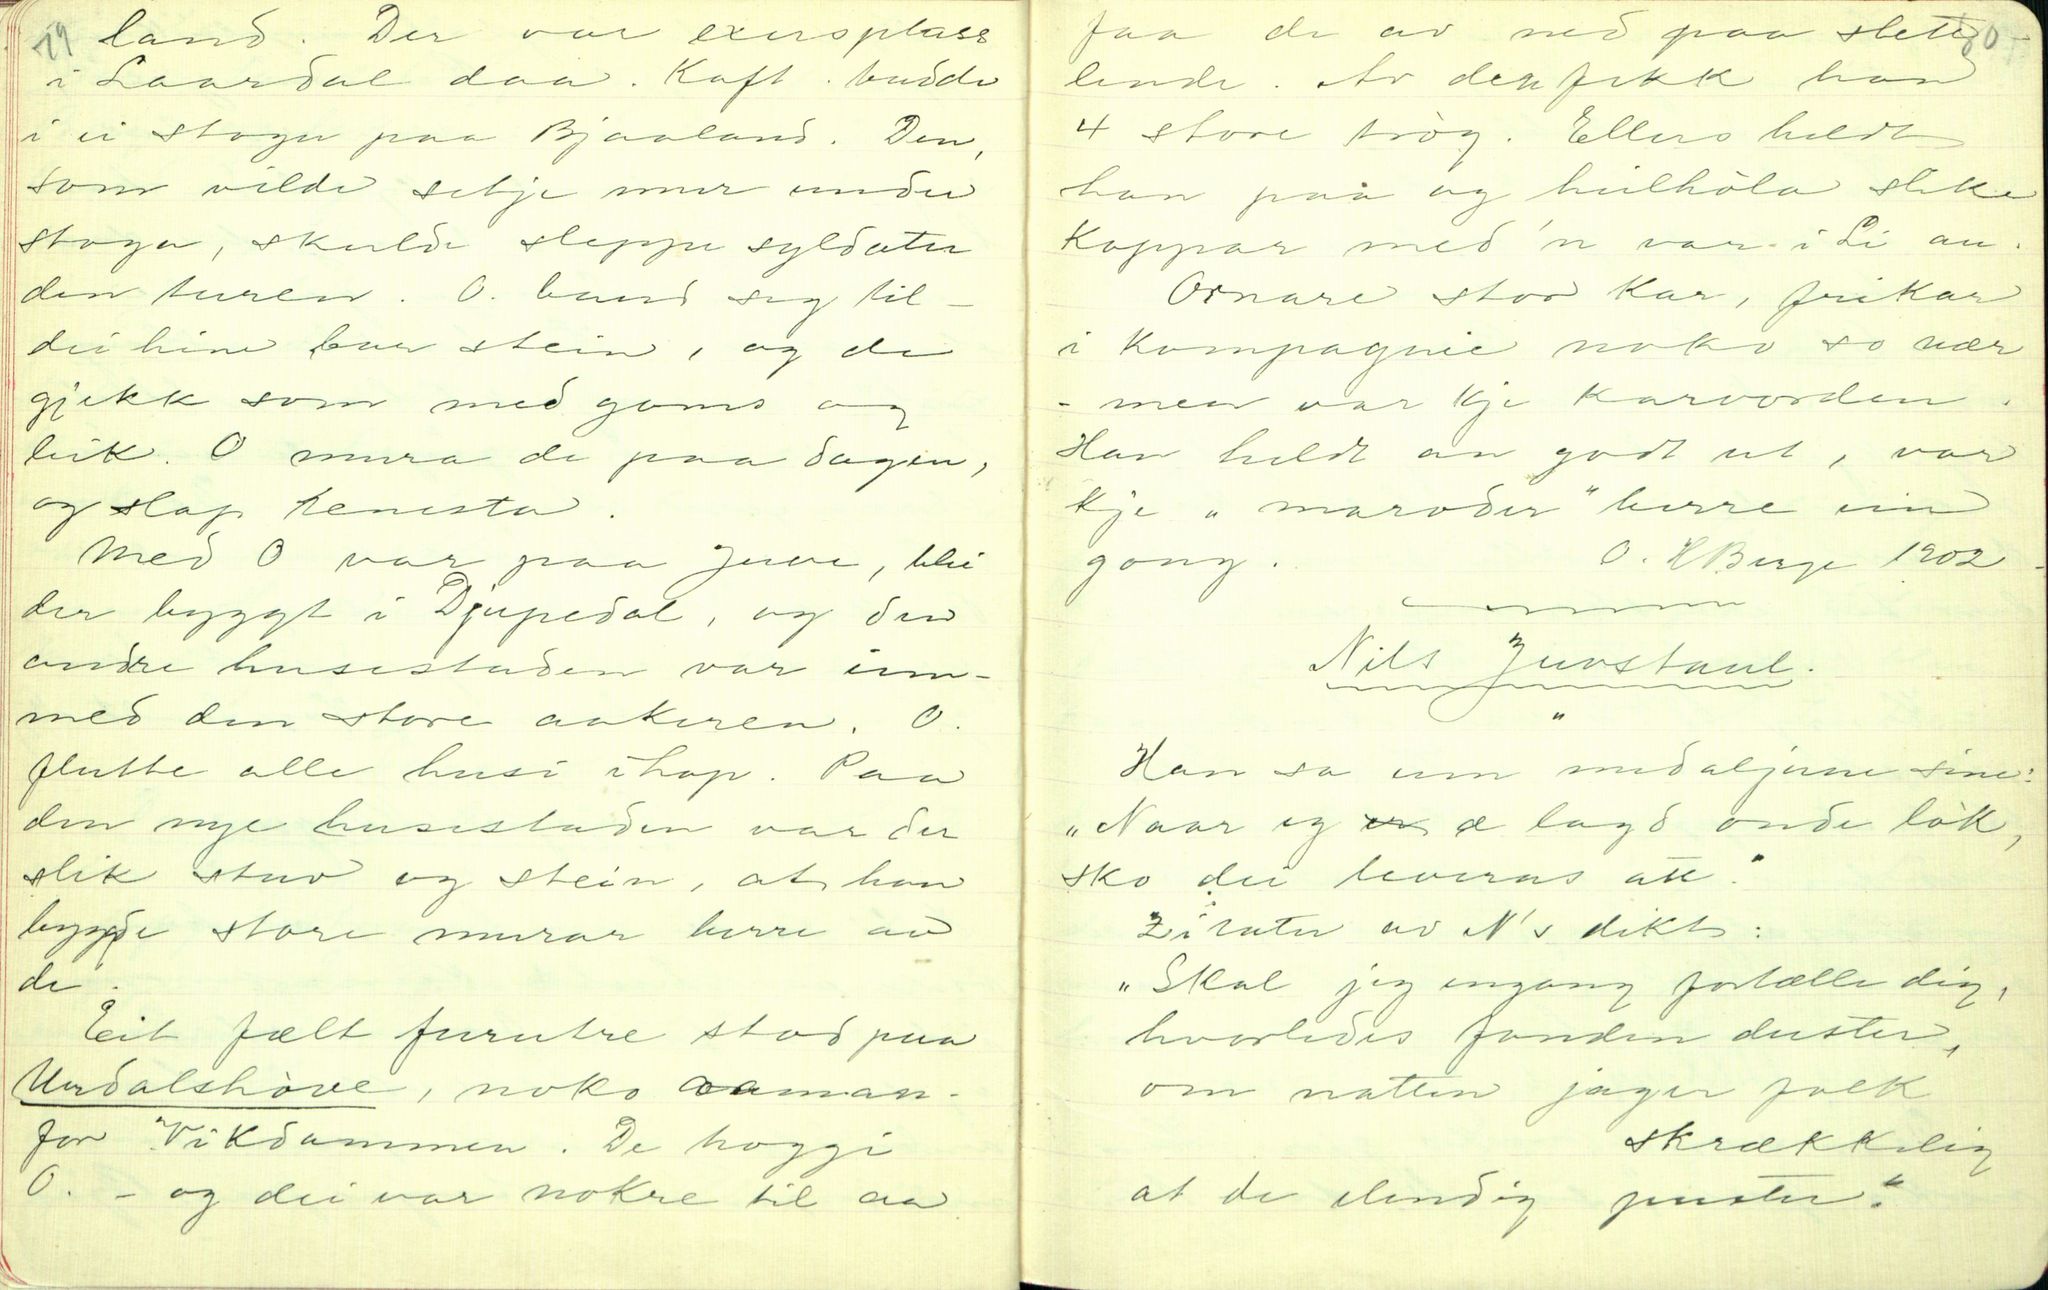 79
land. Der var exersplass
i Laardal daa. Kapt. budde
i ei stogu paa Bjaaland. Den,
som vilde setje mur under
stogu, skulde sleppe syldater
den turen. O. baud seg til -
dei hine bar stein, og de
gjekk som med gams og
leik. O mura de paa dagen,
og slap tenesta.
Med O var paa Juve, blei
der byggt i Djupedal, og den
andre husestaden var inn-
med den store aakeren. O.
flutte alle husi ihop. Paa
den nye husestaden var der
slik stuv og stein, at han
bygde store murar berre av
de.
Eit fælt furutre stod paa
Urdalshòve, noko aaman-
for Vikdammen. De hoggi
O. - og dei var nokre til aa
80
faa de av ned paa slette
lende. Av den fekk han
4 store tròg. Ellers heldt
han paa og hulhòla slike
Koppar med 'n var i Li au.
Ornare stor Kar, frikar
i Kompagnie noko so nær
- men var kje Karvorden.
Han heldt an godt ut, var
kje "maroder" berre ein
gong. O. H Berge 1902
Nils Juvstaul.
"
Han sa um medaljune sine:
"Naar eg æ lagd onde lòk,
sko dei leveras att."
Zitater av N's dikt:
"Skal jeg engang fortælle dig,
hvorledes fanden duster,
om natten jager folk
skrækkelig
at de elendig puster."